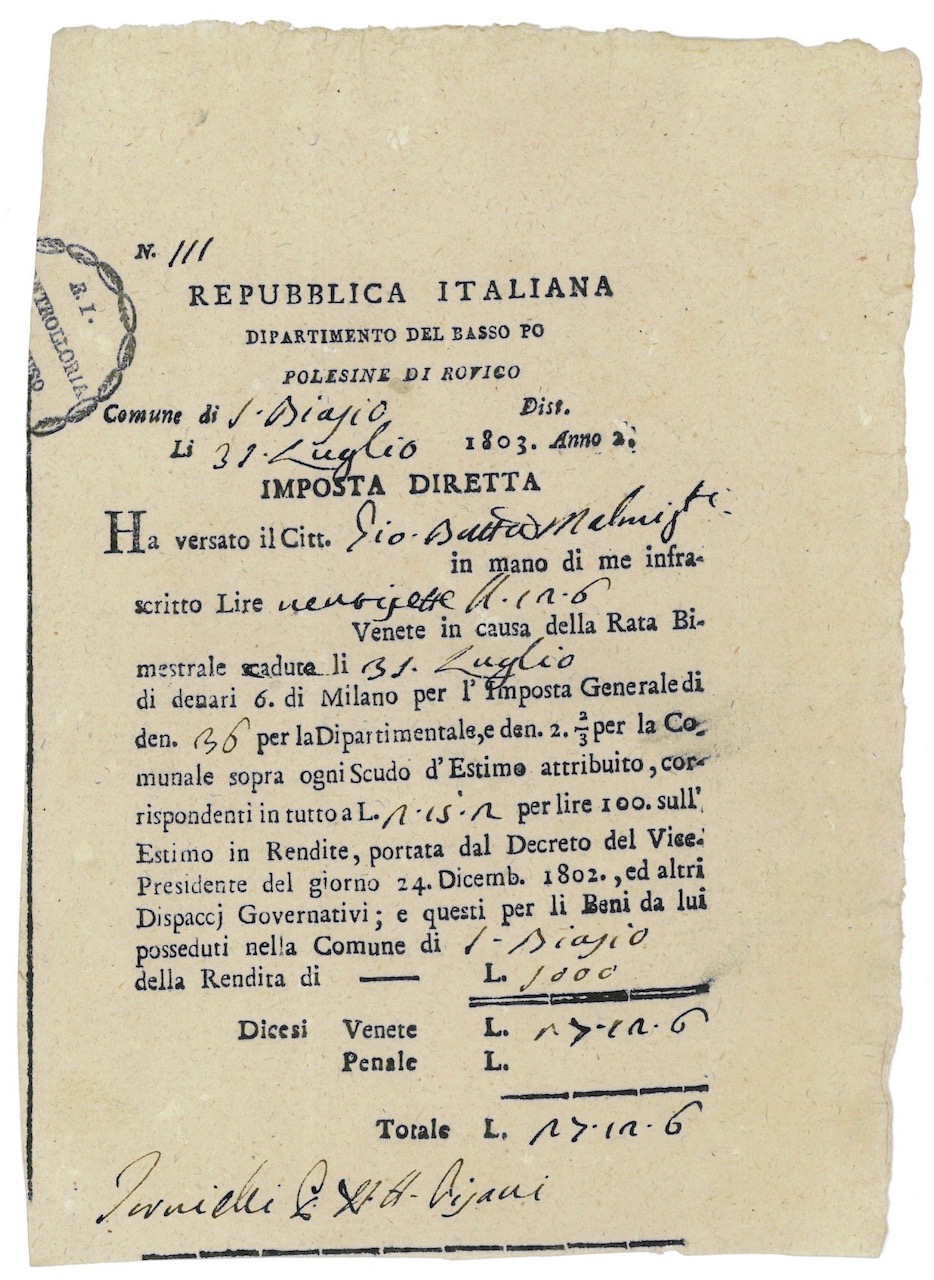 N. 111
R. I.
NTROLLORIA
REPUBBLICA ITALIANA
DIPARTIMENTO DEL BASSO PO
POLESINE DI ROVIGO
Comune di S. Biasio Dist.
Li 31. Luglio 1803. Anno 2.
IMPOSTA DIRETTA
Ha versato il Citt. Gio. Batta
in mano di me infra-
scritto Lire 12. 6
Venete in causa della Rata Bi-
mestrale scaduta li 31. Luglio
di denari 6. di Milano per l' Imposta Generale di
den. 36 per la Dipartimentale, e den. 2. 2/3 per la Co-
munale sopra ogni Scudo d' Estimo attribuito, cor-
rispondenti in tutto a L. 2. 15. 2 per lire 100. sull'
Estimo in Rendite, portata dal Decreto del Vice-
Presidente del giorno 24. Dicemb. 1802., ed altri
Dispaccj Governativi; e questi per li Beni da lui
posseduti nella Comune di S. Biasio
della Rendita di — L. 1000
Dicesi Venete L. 27. 12. 6
Penale L.
Totale L. 27. 12. 6